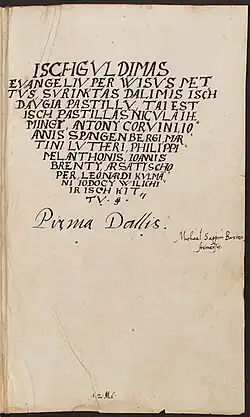 ISCHGVLDIMAS
EVANGELIV PER WISVS MET
TVS, SVRINKTAS DALIMIS ISCH
DAVGIA PASTILLV, TAI EST
ISCH PASTILLAS NICVLAI HE
MINGI, ANTONY CORVINI, IO
ANNIS SPANGENBERGI, MAR
TINI LVTHERI, PHILIPPI
MELANTHONIS, IOANIS
BRENTY, ARSATI, SCHO
PER, LEONARDI KVLMA
NI IODOCY WILICHI
IR ISCH KIT
TV.
Pirma Dallis.
Michael Sappun